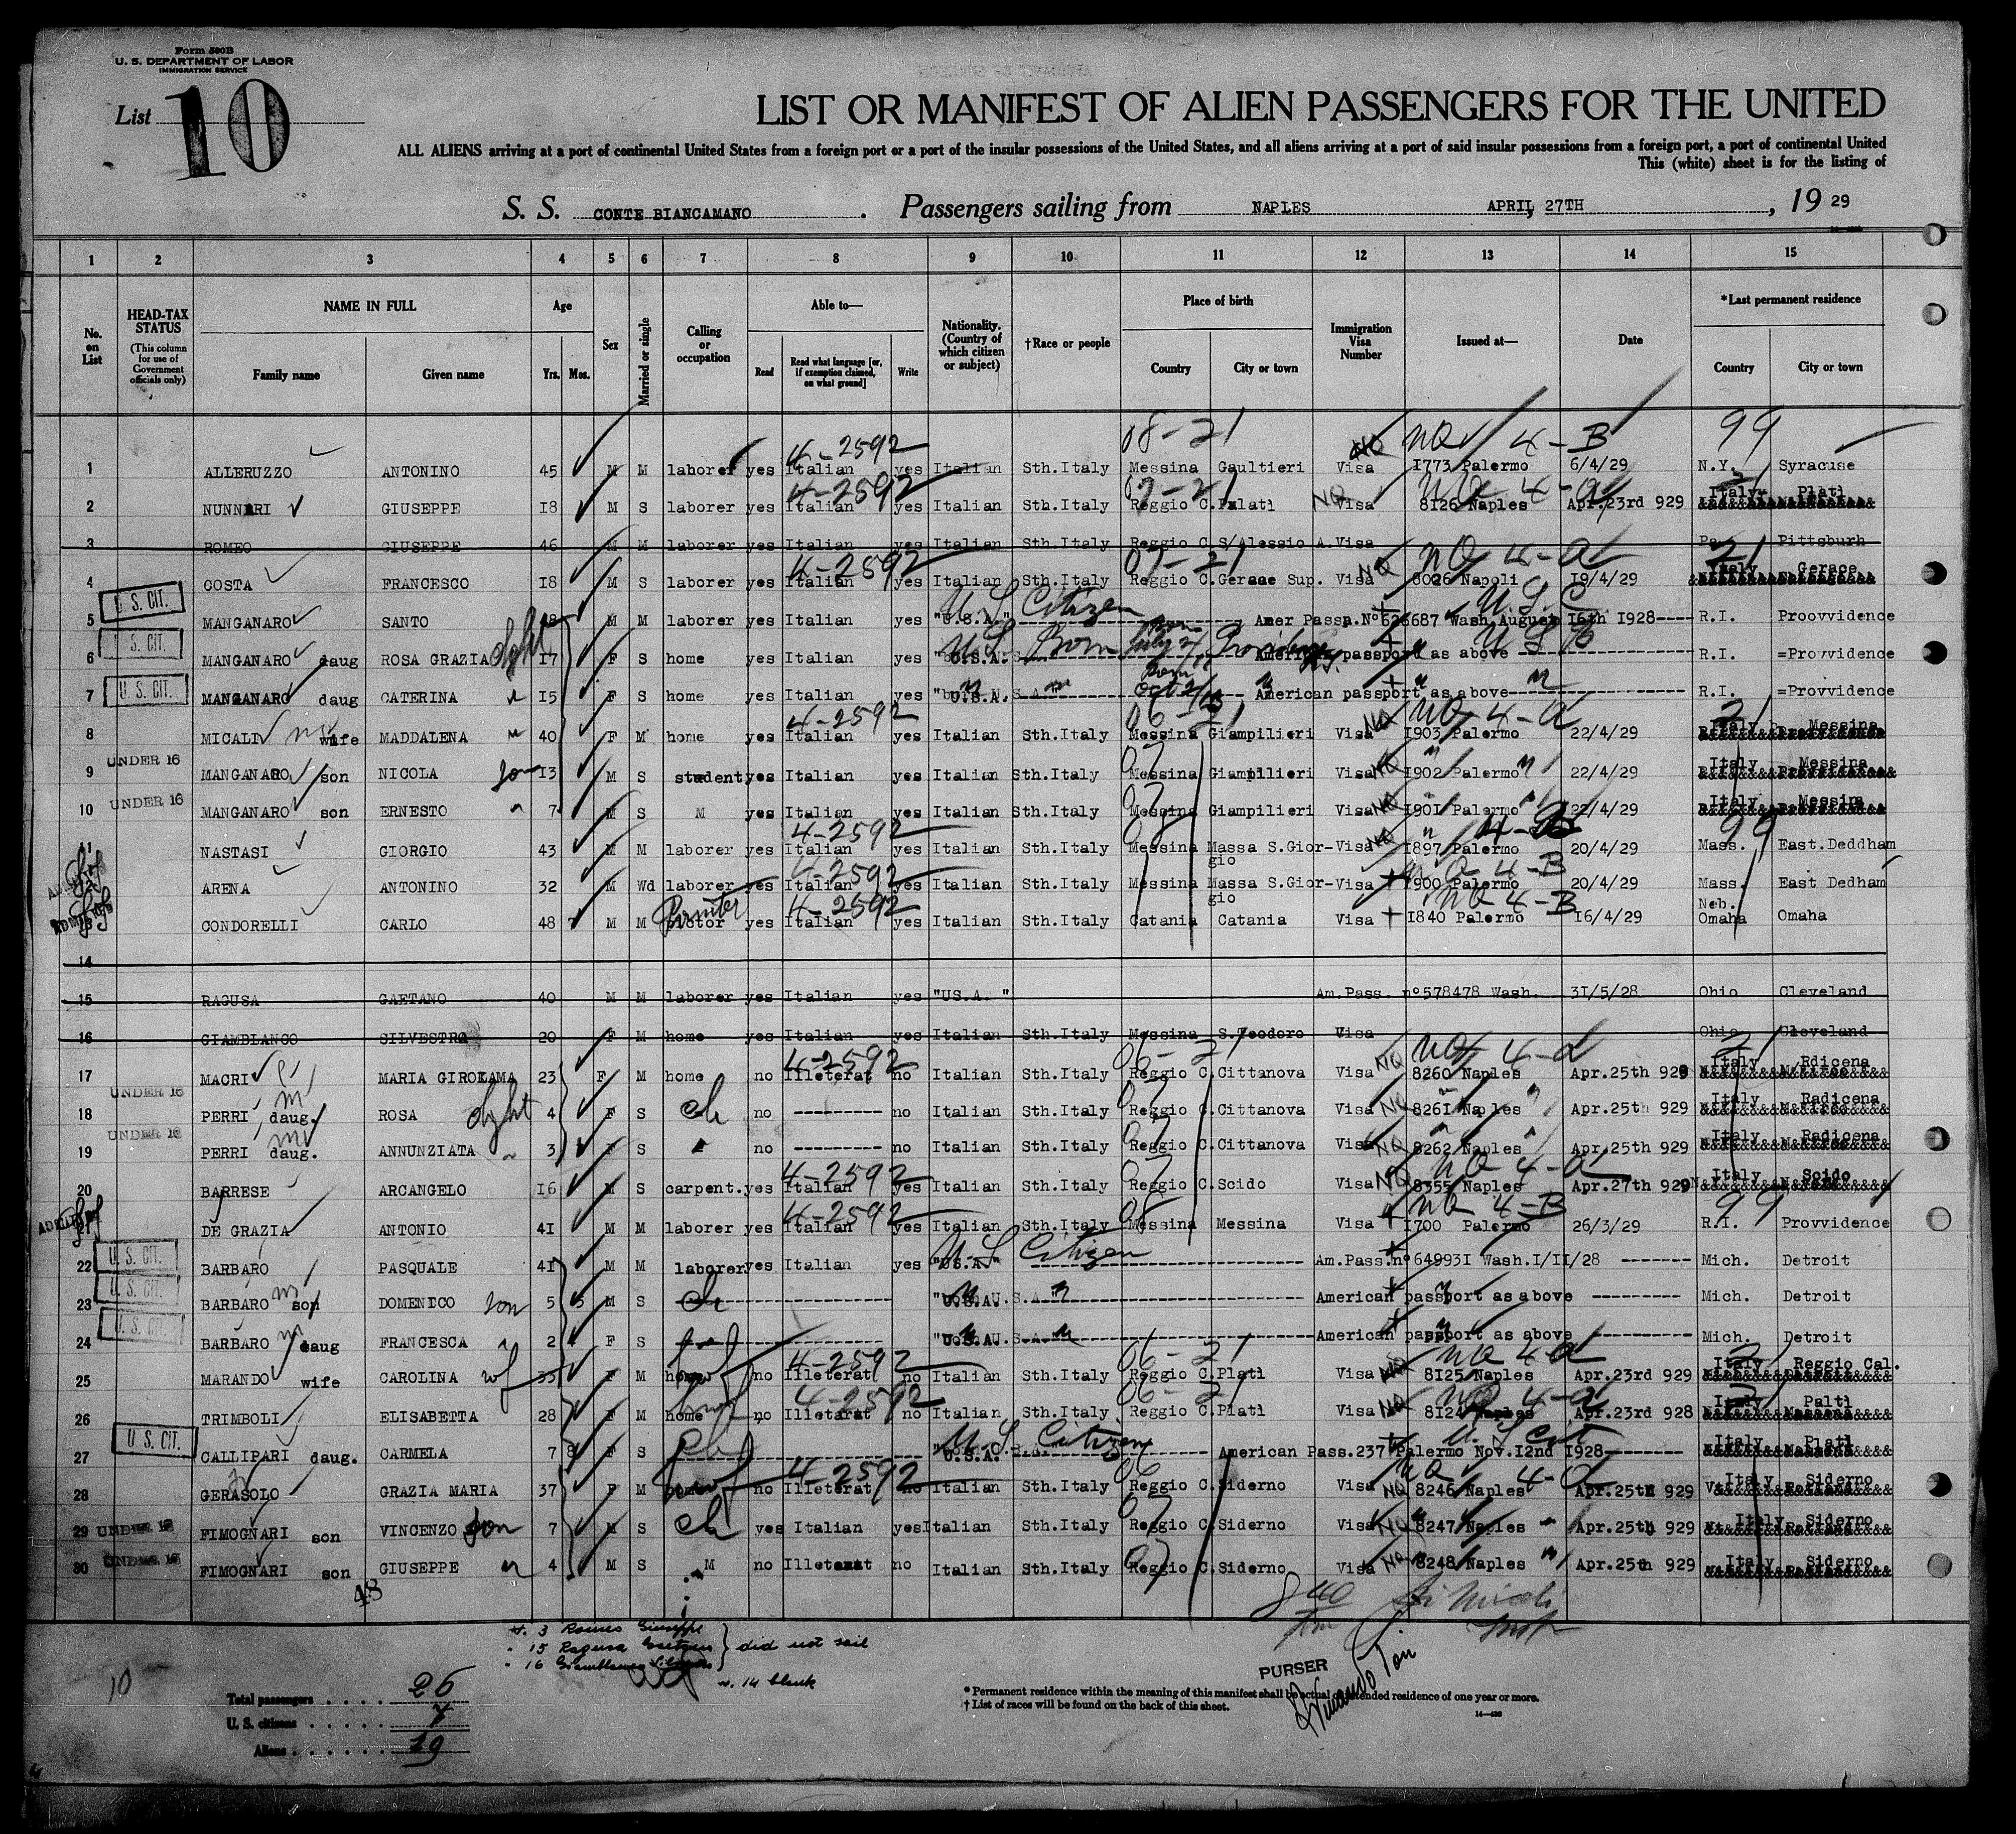 Form 500B
U. S. DEPARTMENT OF LABOR
IMMIGRATION SERVICE
List 10
LIST OR MANIFEST OF ALIEN PASSENGERS FOR THE UNITED
ALL ALIENS arriving at a port of continental United States from a foreign port or a port of the insular possessions of the United States, and all aliens arriving at a port of said insular possessions from a foreign port, a port of continental United
This (white) sheet is for the listing of
S. S. CONTE BIANCAMANO . Passengers sailing from NAPLES APRIL 27TH , 19 29
1 2 3 4 5 6 7 8 9 10 11 12 13 14 15
No. on List
HEAD-TAX STATUS (This column for use of Government officials only)
NAME IN FULL Family name Given name
Age Yrs. Mos.
Sex
Married or single
Calling or occupation
Able to— Read Read what language [or, if exemption claimed, on what ground] Write
Nationality. (Country of which citizen or subject)
†Race or people
Place of birth Country City or town
Immigration Visa Number
Issued at—
Date
*Last permanent residence Country City or town
08-21 NQ 4-B 99
4-2592
1 ALLERUZZO ANTONINO 45 M M laborer yes Italian yes Italian Sth.Italy Messina Gaultieri Visa 1773 Palermo 6/4/29 N.Y. Syracuse
4-2592
2 NUNNARI GIUSEPPE 18 M S laborer yes Italian yes Italian Sth.Italy Reggio C. Palati Visa 8126 Naples Apr.23rd 929 Italy Plati
3 ROMEO GIUSEPPE 46 M M laborer yes Italian yes Italian Sth.Italy Reggio C S/Alessio A. Visa Pa. Pittsburh
4-2592
4 COSTA FRANCESCO 18 M S laborer yes Italian yes Italian Sth.Italy Reggio C. Gerace Sup. Visa 8026 Napoli 19/4/29 Italy Gerace
U. S. CIT. U. S. Citizen U. S. C.
5 MANGANARO SANTO M M laborer yes Italian yes "U.S.A." Amer Passp.N°626687 Wash August 16th 1928 R.I. Proovvidence
U. S. CIT. Born Providence
6 MANGANARO daug ROSA GRAZIA 17 F S home yes Italian yes U.S.A. American passport as above R.I. =Provvidence
U. S. CIT.
7 MANGANARO daug CATERINA 15 F S home yes Italian yes U.S.A. American passport as above R.I. =Provvidence
4-2592
8 MICALI wife MADDALENA 40 F M home yes Italian yes Italian Sth.Italy Messina Giampilieri Visa 1903 Palermo 22/4/29 Italy Messina
UNDER 16
9 MANGANARO son NICOLA son 13 M S student yes Italian yes Italian Sth.Italy Messina Giampilieri Visa 1902 Palermo 22/4/29 Italy Messina
10 UNDER 16 MANGANARO son ERNESTO 7 M S M yes Italian yes Italian Sth.Italy Messina Giampilieri Visa 1901 Palermo 22/4/29 Italy Messina
4-2592
11 NASTASI GIORGIO 43 M M laborer yes Italian yes Italian Sth.Italy Messina Massa S.Giorgio Visa 1897 Palermo 20/4/29 Mass. East.Deddham
4-2592
ARENA ANTONINO 32 M Wd laborer yes Italian yes Italian Sth.Italy Messina Massa S.Giorgio Visa 1900 Palermo 20/4/29 Mass. East Dedham
4-2592
CONDORELLI CARLO 48 M M yes Italian yes Italian Sth.Italy Catania Catania Visa 1840 Palermo 16/4/29 Neb. Omaha Omaha
14
15 RAGUSA GAETANO 40 M M laborer yes Italian yes "US.A. " Am.Pass. n°578478 Wash. 31/5/28 Ohio Cleveland
16 GIAMBLANCO SILVESTRA 20 F M home yes Italian yes Italian Sth.Italy Messina S.Teodoro Visa Ohio Cleveland
4-2592
17 MACRI MARIA GIROLAMA 23 F M home no Illeterat no Italian Sth.Italy Reggio C. Cittanova Visa 8260 Naples Apr.25th 929 Italy Rdicena
UNDER 16
18 PERRI daug. ROSA 4 F S ch no no Italian Sth.Italy Reggio C. Cittanova Visa 8261 Naples Apr.25th 929 Italy Radicena
UNDER 16
19 PERRI daug. ANNUNZIATA 3 F S no no Italian Sth.Italy Reggio C. Cittanova Visa 8262 Naples Apr.25th 929 Italy Radicena
4-2592
20 BARRESE ARCANGELO 16 M S carpent. yes Italian yes Italian Sth.Italy Reggio C. Scido Visa 8355 Naples Apr.27th 929 Italy Scido
4-2592
DE GRAZIA ANTONIO 41 M M laborer yes Italian yes Italian Sth.Italy Messina Messina Visa 1700 Palermo 26/3/29 R.I. Provvidence
U. S. CIT. U. S. Citizen
22 BARBARO PASQUALE 41 M M laborer yes Italian yes "US.A." Am.Pass.n°649931 Wash.1/11/28 Mich. Detroit
U. S. CIT.
23 BARBARO son DOMENICO son 5 M S ch American passport as above Mich. Detroit
U. S. CIT.
24 BARBARO daug FRANCESCA 2 F S American passport as above Mich. Detroit
4-2592
25 MARANDO wife CAROLINA wf 35 F M no Illeterat no Italian Sth.Italy Reggio C. Plati Visa 8125 Naples Apr.23rd 929 Italy Reggio Cal.
4-2592
26 TRIMBOLI ELISABETTA 28 F M home no Illetarat no Italian Sth.Italy Reggio C. Plati Visa Naples Apr.23rd 928 Italy Palti
U S. CIT. U. S. Citizen
27 CALLIPARI daug. CARMELA 7 8 F S ch American Pass.237 Palermo Nov.12nd 1928 Italy Plati
4-2592
28 GERASOLO GRAZIA MARIA 37 F M no Illeterat no Italian Sth.Italy Reggio C. Siderno Visa 8246 Naples Apr.25th 929 Italy Siderno
29 UNDER 16 FIMOGNARI son VINCENZO son 7 M S ch yes Italian yes Italian Sth.Italy Reggio C. Siderno Visa 8247 Naples Apr.25th 929 Italy Siderno
30 UNDER 16 FIMOGNARI son GIUSEPPE 4 M S M no Illeterat no Italian Sth.Italy Reggio C. Siderno Visa 8248 Naples Apr.25th 929 Italy Siderno
48
3 Romeo Giuseppe
" 15 Ragusa Gaetano } did not sail
" 16 Giamblanco
n. 14 blank
10
Total passengers . . . . 26
U. S. citizens . . . . . 7
Aliens . . . . . . 19
PURSER
* Permanent residence within the meaning of this manifest shall be actual or intended residence of one year or more.
† List of races will be found on the back of this sheet.